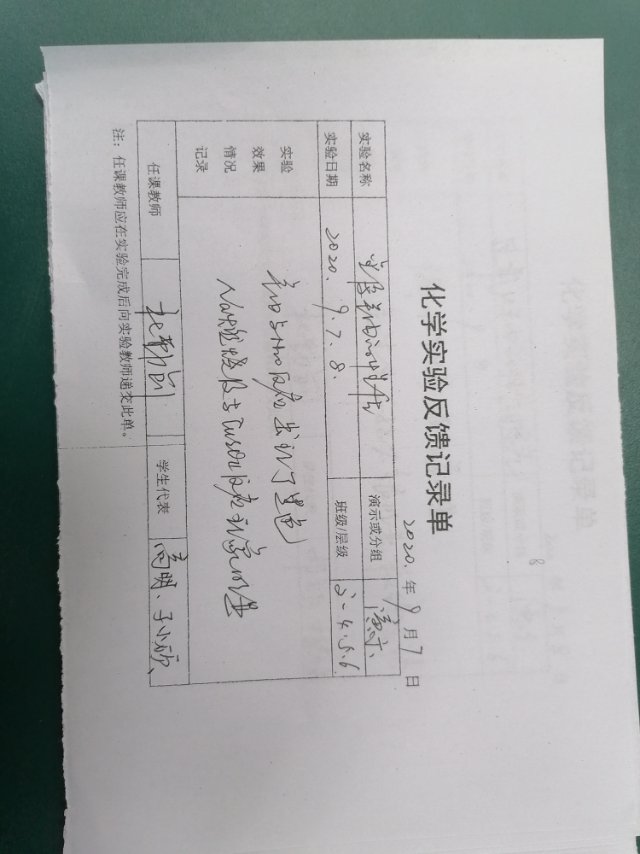 化学实验反馈记录单
2020.年9月7日
实验名称 金属钠的性质 演示或分组 演示、
实验日期 2020.9.7.8. 班级/层级 4.5.6
实验
效果
情况
记录
Na与H2O反应出现了黑色
Na燃烧及与CuSO4反应现象明显
任课教师 学生代表 高明、
注：任课教师应在实验完成后向实验教师递交此单。